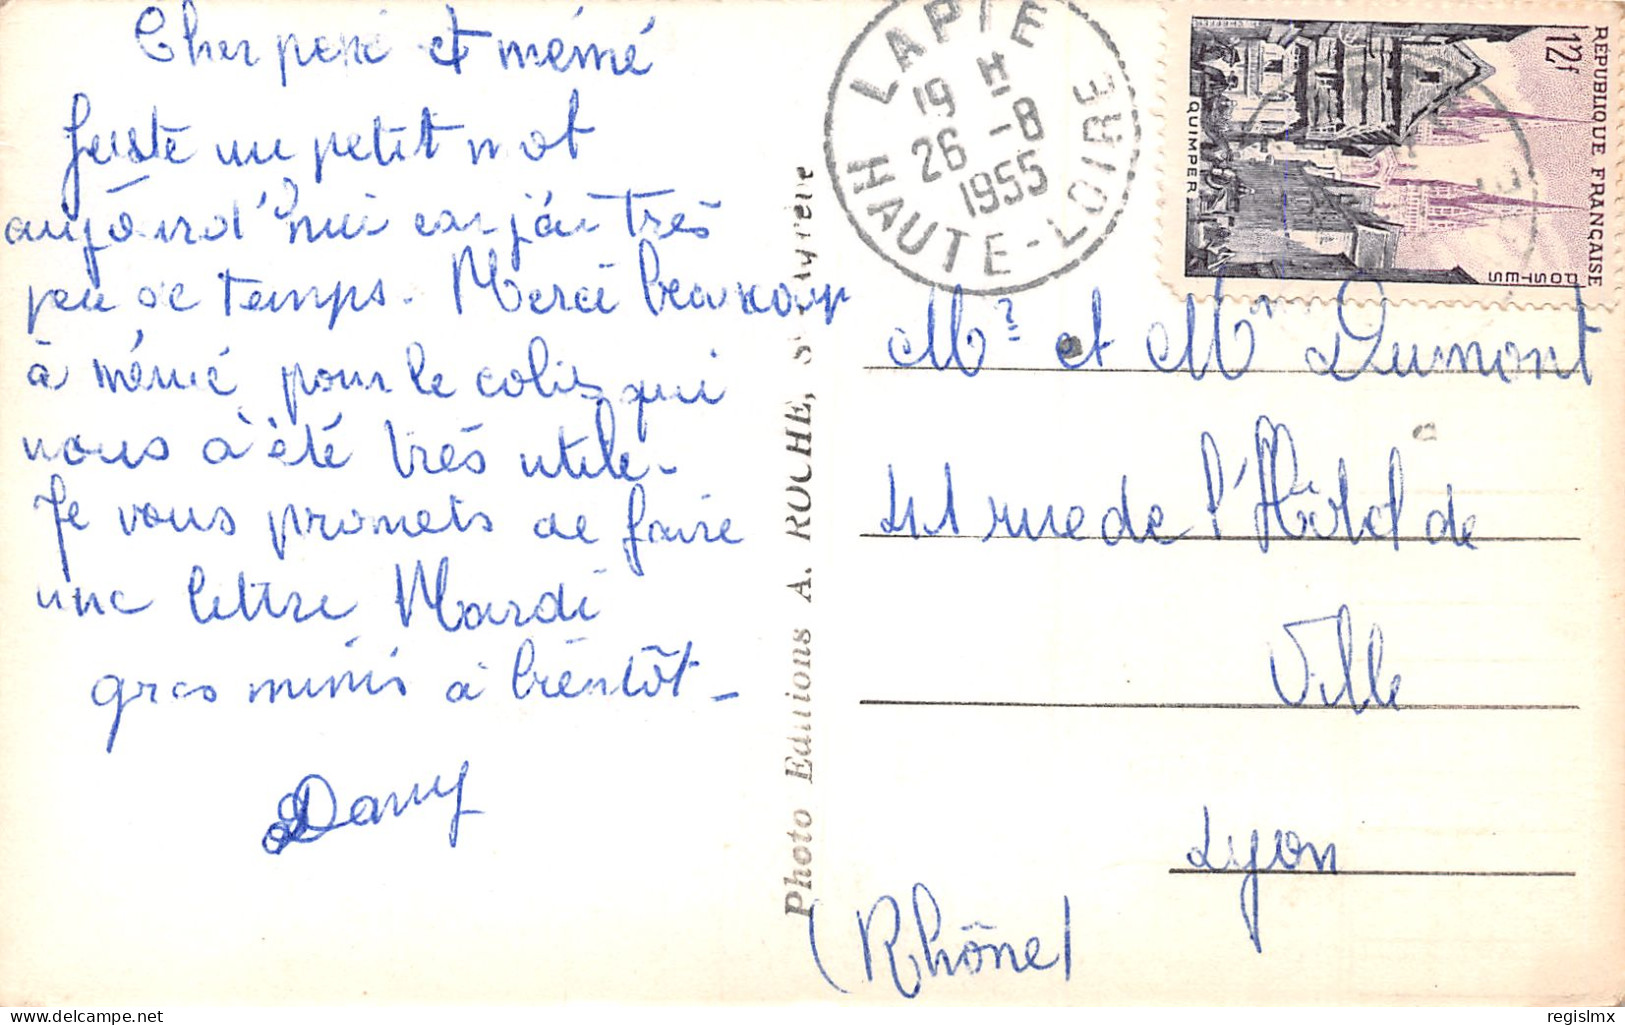 Cher pépé et mémé
Juste un petit mot
aujourd'hui car j'ai très
peu de temps. Merci beaucoup
à mémé pour le colis qui
nous a été très utile-
Je vous promets de faire
une lettre Mardi
gros mimis à bientôt-
Dany
Photo Editions A. ROCHE, St Agrève
LAPTE
19 H
26 -8
1955
HAUTE-LOIRE
12f
RÉPUBLIQUE FRANÇAISE
POSTES
QUIMPER
Mr et Mme Dumont
41 rue de l'Hôtel de
Ville
Lyon
(Rhône)
regislmx